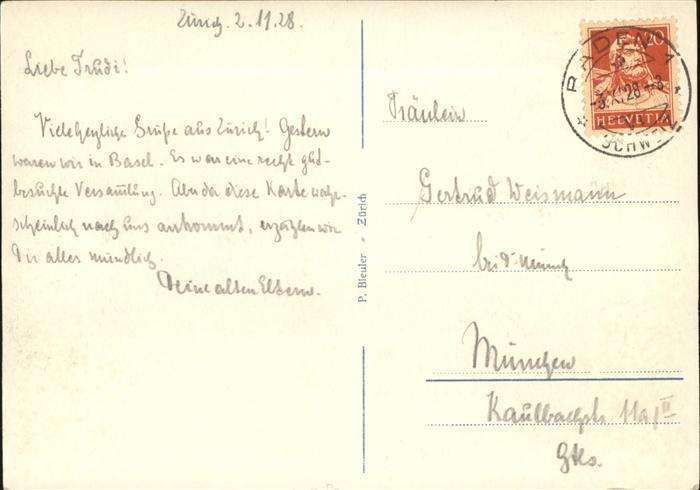 Zürich, 2.11.28.
Liebe Trudi!
Viele herzliche Grüße aus Zürich! Gestern
waren wir in Basel. Es war eine recht gut-
besuchte Versamlung. Aber da diese Karte wahr-
scheinlich nach uns ankommt, erzählen wir
Dir alles mündlich.
Deine alten Eltern.
P. Bleuler - Zürich
20
HELVETIA
BADEN 1
-3.XI.28-8
(SCHWEIZ)
Fräulein
Gertrud Weismann
bei
München
Kaulbachstr. 11a/III
Gths.